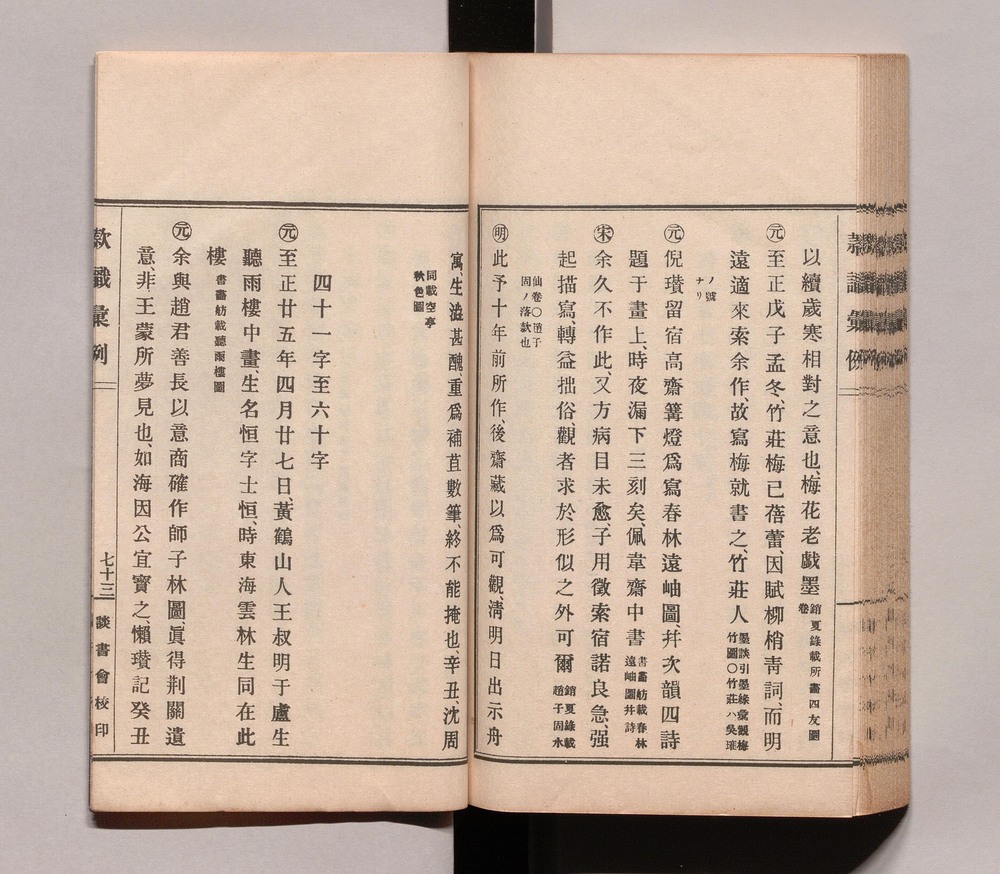 以續歲寒相對之意也、梅花老戲墨 銷夏錄載所畫四友圖卷
㊒元 至正戊子孟冬、竹莊梅已蓓蕾、因賦柳梢靑詞、而明
遠適來索余作、故寫梅就書之、竹莊人 墨談引墨緣彙觀梅竹圖〇竹莊ハ吳瓘
ノ號ナリ
元 倪瓚留宿高齋篝燈爲寫春林遠岫圖、幷次韻四詩
題于畫上、時夜漏下三刻矣、佩韋齋中書 書畫舫載春林遠岫圖幷詩
宋 余久不作此、又方病目未愈、子用徵索宿諾良急、强
起描寫轉益拙俗、觀者求於形似之外可爾 銷夏錄載趙子固水
仙卷〇趙子固ノ落款也
明 此予十年前所作、後齋藏以爲可觀、淸明日出示舟
寓、生澁甚醜、重爲補苴數筆、終不能掩也、辛丑、沈周
同載空亭秋色圖
四十一字至六十字
元 至正廿五年四月廿七日黃鶴山人王叔明于盧生
聽雨樓中畫、生名恒字士恒、時東海雲林生同在此
樓 書畫舫載聽雨樓圖
元 余與趙君善長以意商確作師子林圖、眞得荆關遺
意非王蒙所夢見也、如海因公宜寶之、懶瓚記癸丑
款識彙例
七十三
談書會校印